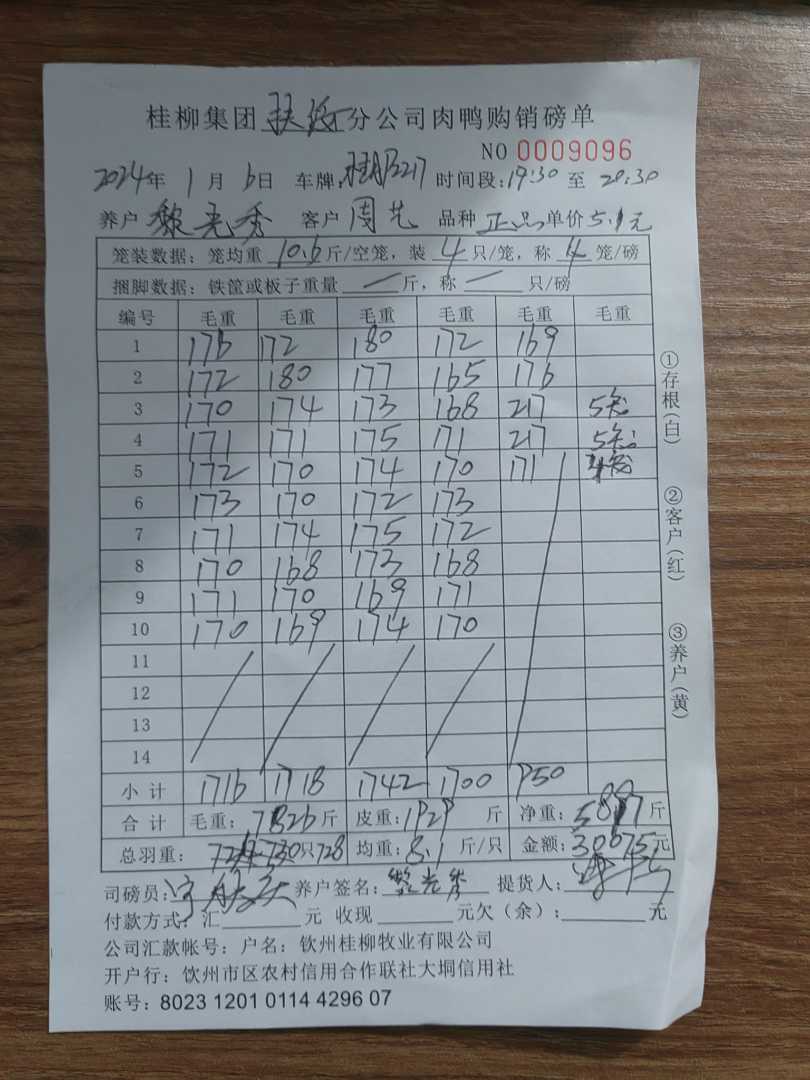 桂柳集团 分公司肉鸭购销磅单
NO 0009096
2024年 1月 6日 车牌: 217 时间段:19:30 至 20:30
养户 黎尧秀 客户 周艺 品种 正品 单价5.1元
笼装数据: 笼均重 10.6 斤/空笼, 装 4 只/笼, 称 4 笼/磅
捆脚数据: 铁筐或板子重量 — 斤, 称 — 只/磅
编号 毛重 毛重 毛重 毛重 毛重 毛重
1 176 172 180 172 169
2 172 180 177 165 176
3 170 174 173 168 217 5笼
4 171 171 175 171 217 5笼
5 172 170 174 170 171 4笼
6 173 170 172 173
7 171 174 175 172
8 170 168 173 168
9 171 170 169 171
10 170 169 174 170
11
12
13
14
小计 1716 1718 1742 1700 950
合计 毛重: 7826 斤 皮重: 1929 斤 净重: 斤
总羽重: 730只 728 均重: 8.1 斤/只 金额: 30075 元
司磅员: 养户签名: 黎尧秀 提货人:
付款方式: 汇 元 收现 元欠(余): 元
公司汇款帐号: 户名: 钦州桂柳牧业有限公司
开户行: 饮州市区农村信用合作联社大垌信用社
账号: 8023 1201 0114 4296 07
①存根(白)
②客户(红)
③养户(黄)